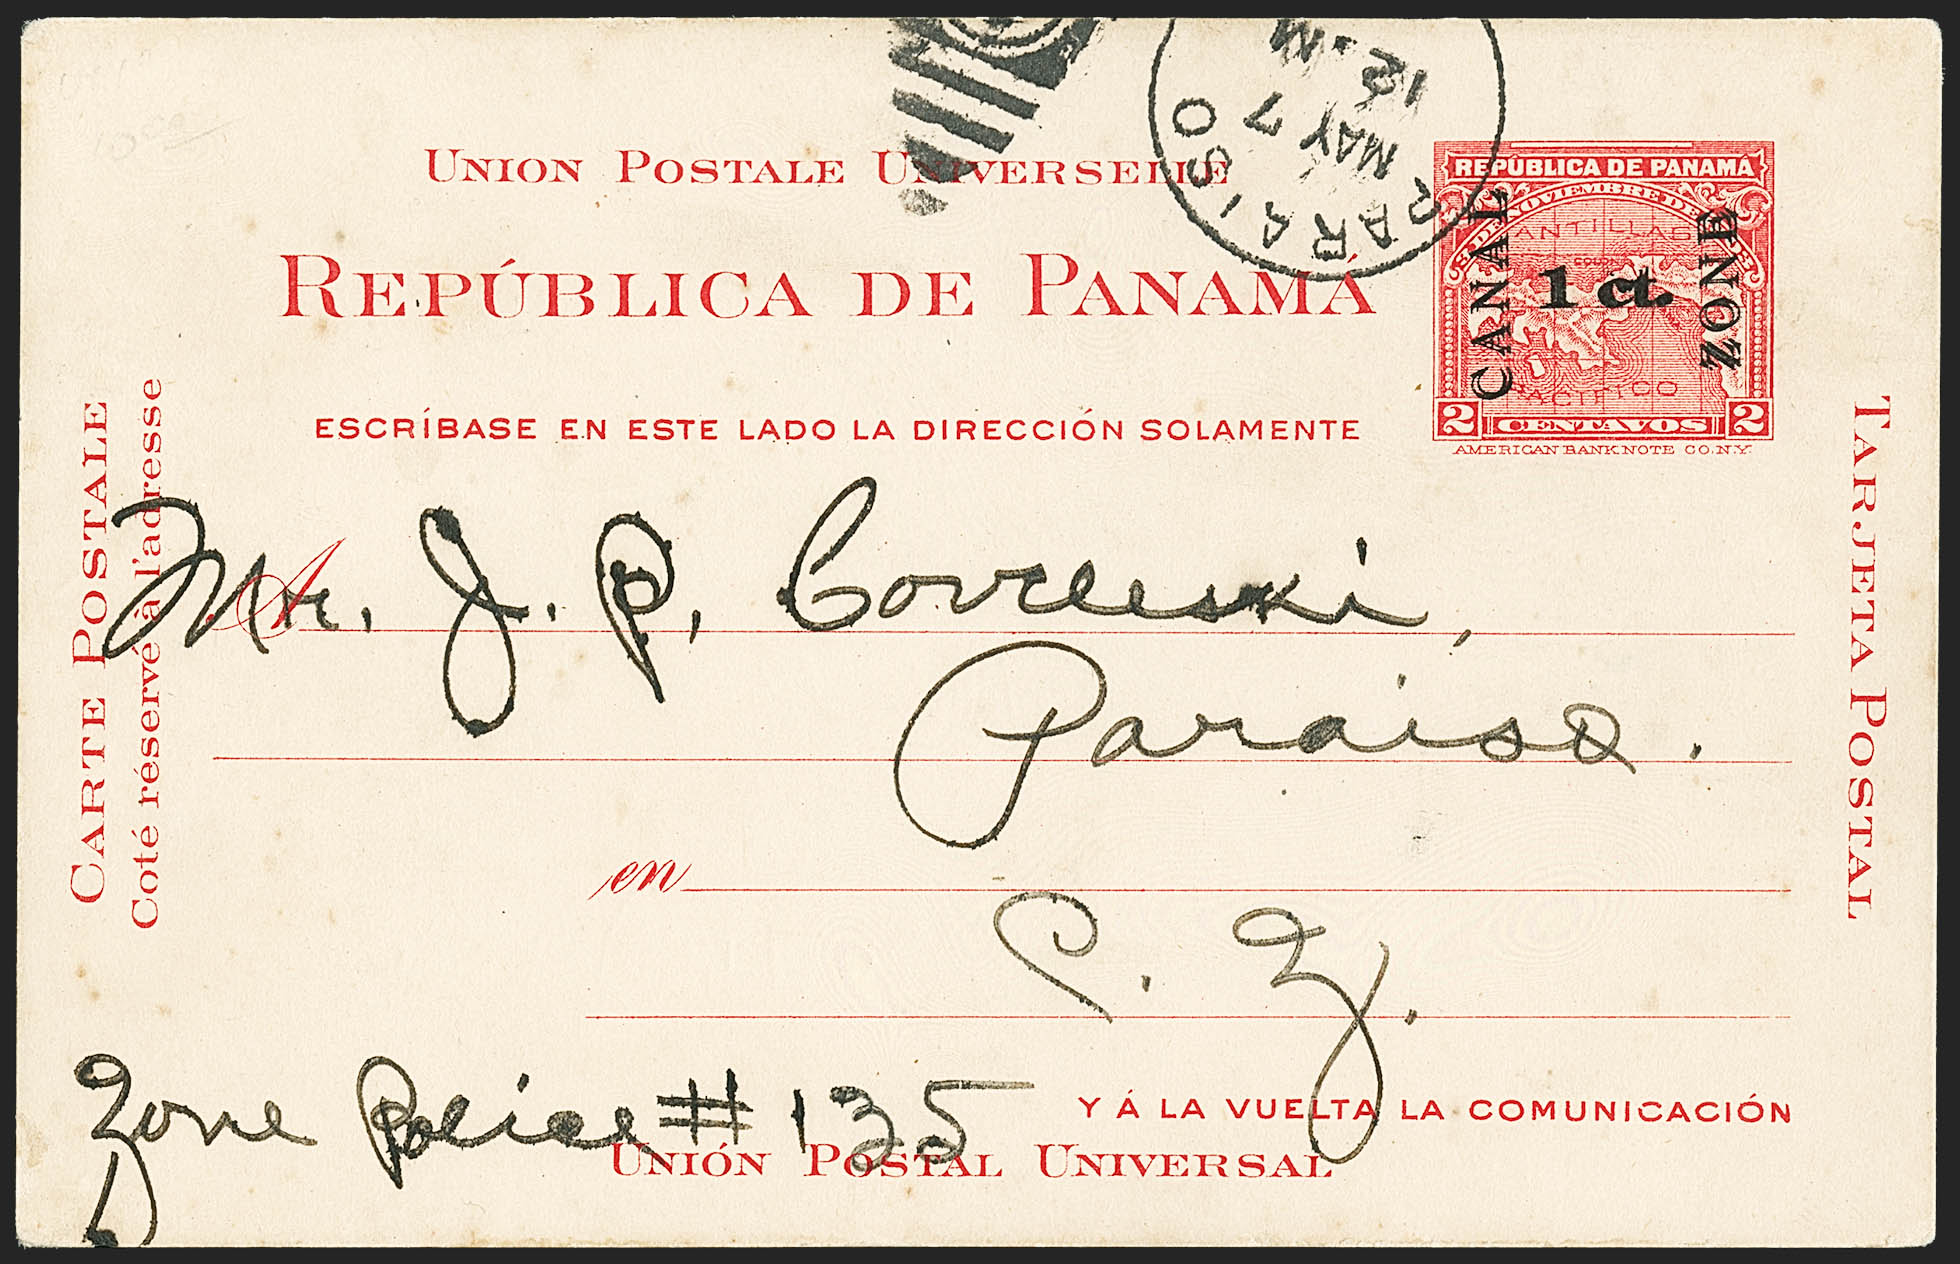 UNION POSTALE UNIVERSELLE
REPÚBLICA DE PANAMÁ
ESCRÍBASE EN ESTE LADO LA DIRECCIÓN SOLAMENTE
PARAISO
MAY 7
12 M
REPÚBLICA DE PANAMÁ
3 DE NOVIEMBRE DE
ANTILLAS
CANAL
1 ct.
ZONE
PACIFICO
2 CENTAVOS 2
AMERICAN BANK NOTE CO. N.Y.
CARTE POSTALE
Coté réservé à l'adresse
TARJETA POSTAL
A
Mr. J. P. Covleski,
Paraiso.
en
C. Z.
Zone Police # 135
Y Á LA VUELTA LA COMUNICACIÓN
UNIÓN POSTAL UNIVERSAL